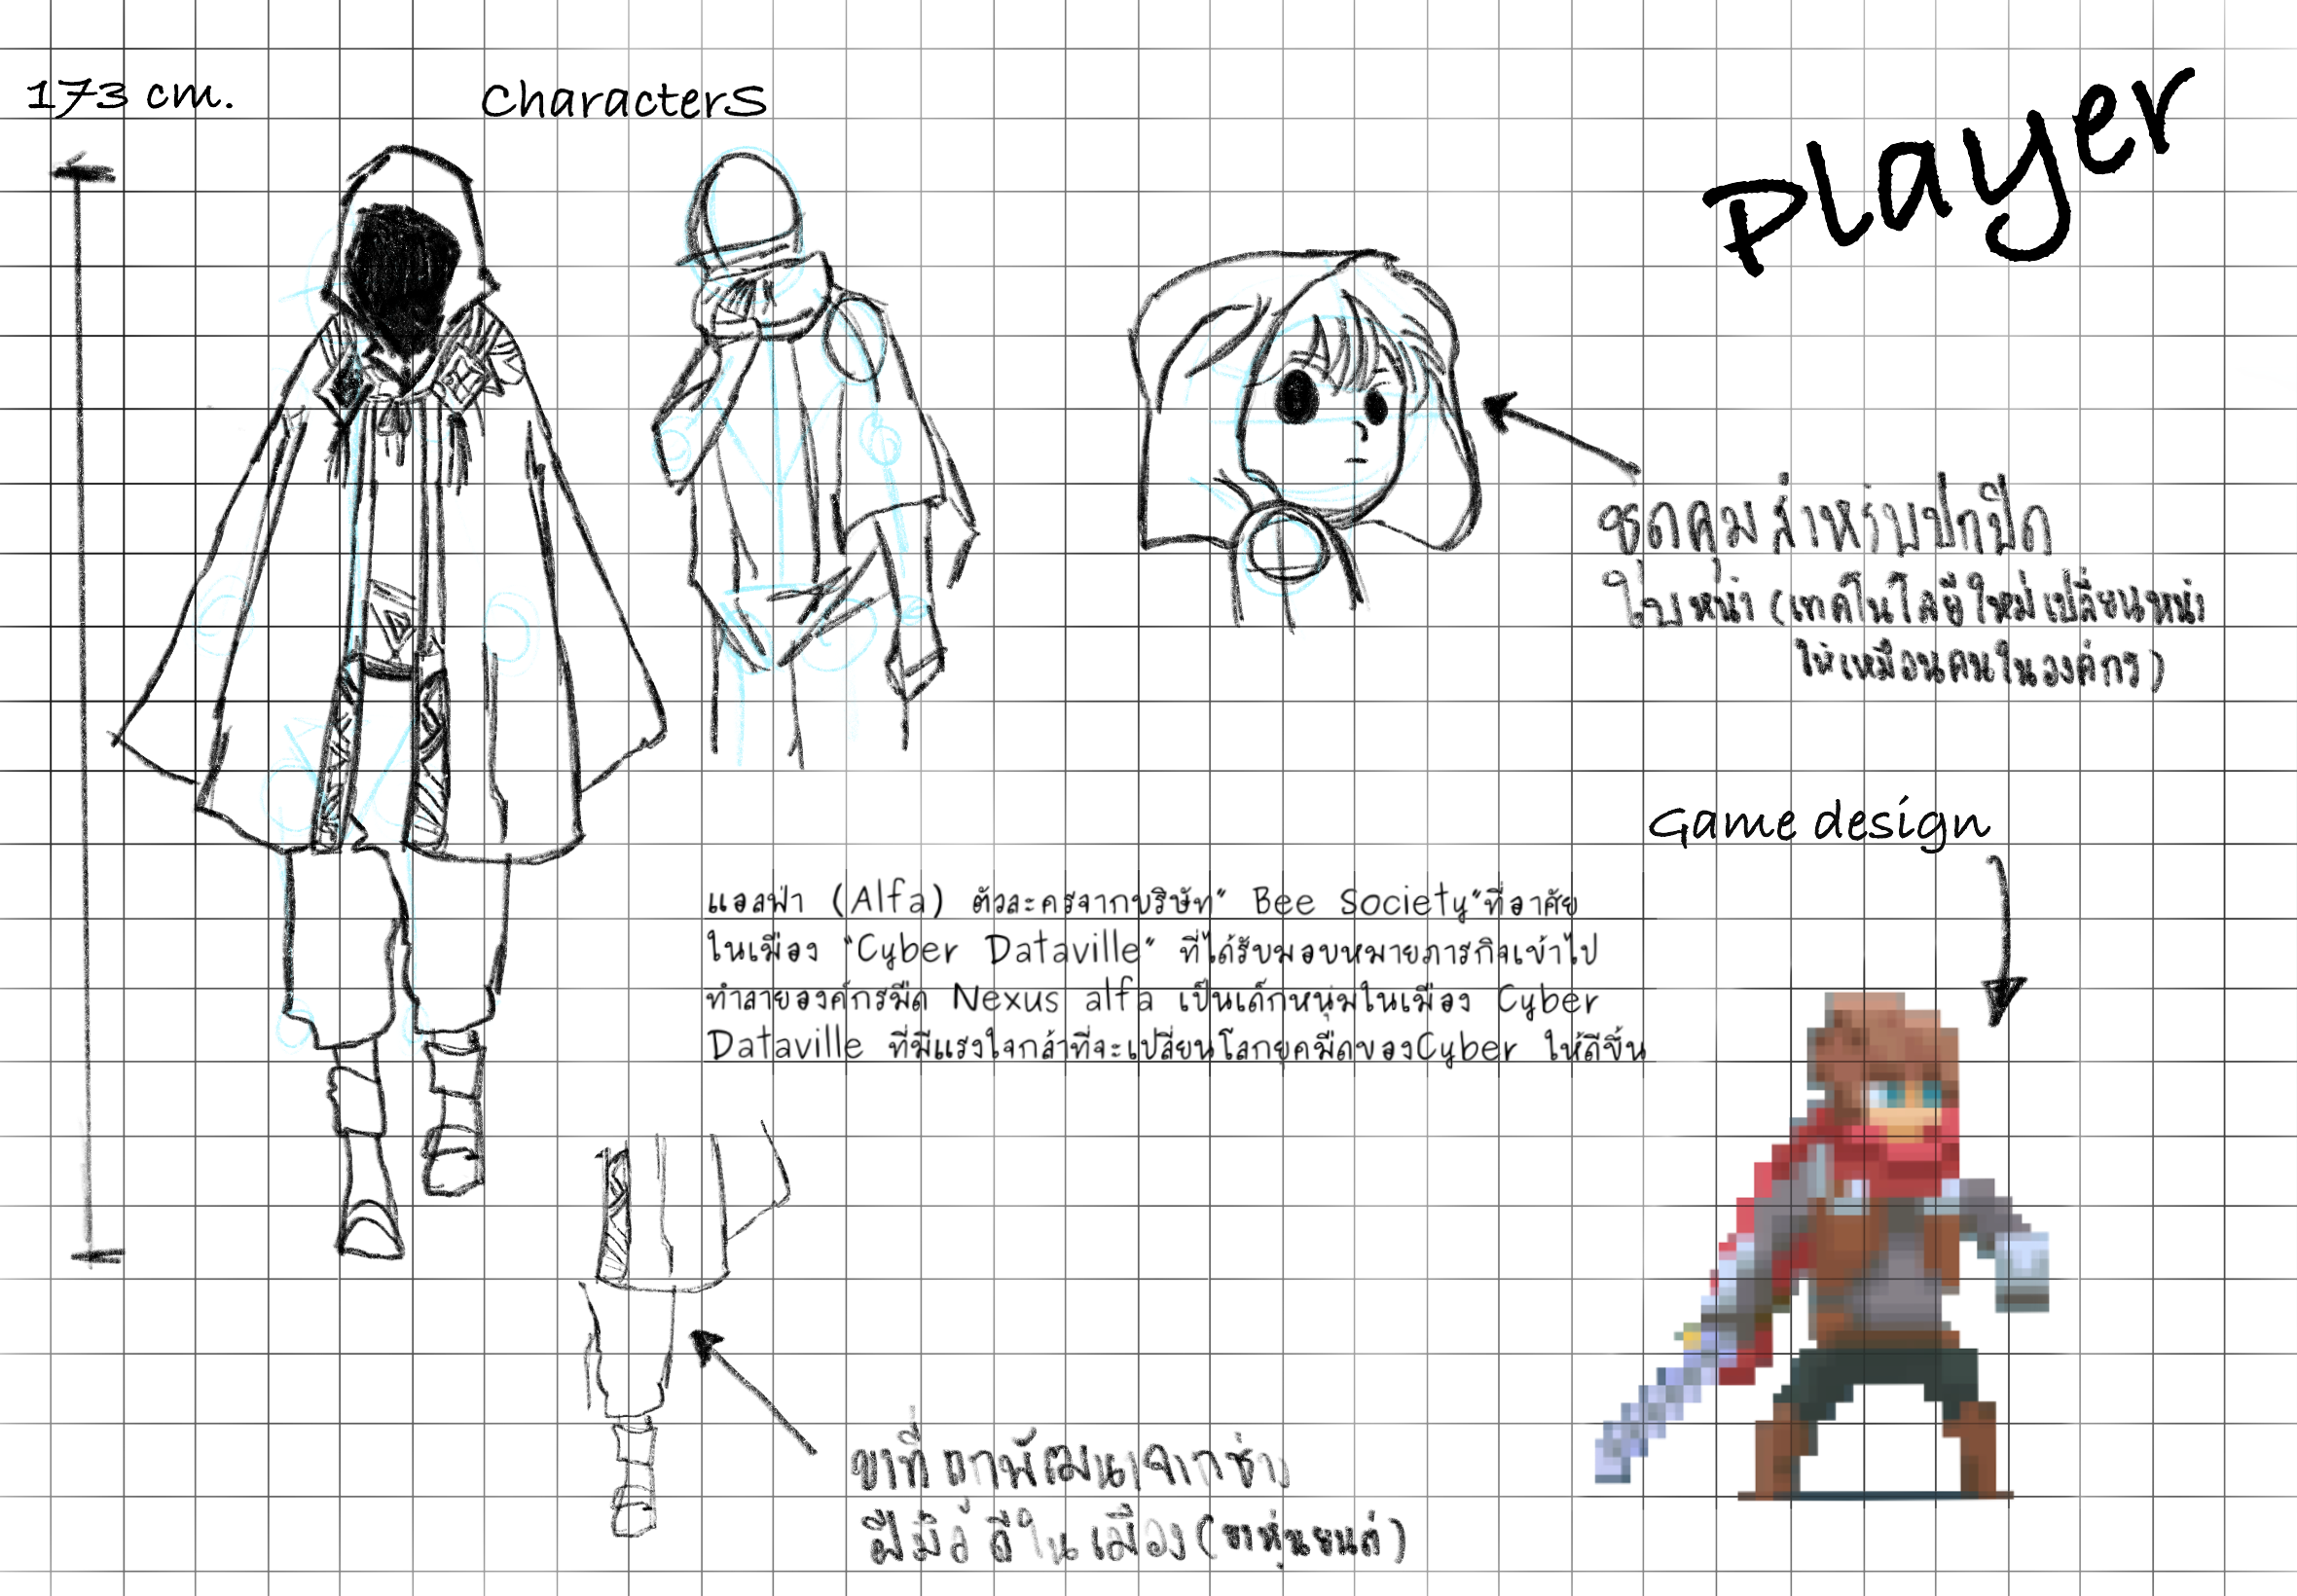 173 cm.
Characters
Player
ชุดคุมสำหรับปกปิด
ใบหน้า (เทคโนโลยีใหม่เปลี่ยนหน้า
ให้เหมือนคนในองค์กร)
Game design
แอลฟ่า (Alfa) ตัวละครจากบริษัท" Bee Society"ที่อาศัย
ในเมือง "Cyber Dataville" ที่ได้รับมอบหมายภารกิจเข้าไป
ทำลายองค์กรมืด Nexus alfa เป็นเด็กหนุ่มในเมือง Cyber
Dataville ที่มีแรงใจกล้าที่จะเปลี่ยนโลกยุคมืดของCyber ให้ดีขึ้น
ขาที่ถูกพัฒนาจากช่าง
ฝีมือดีในเมือง (ขาหุ่นยนต์)